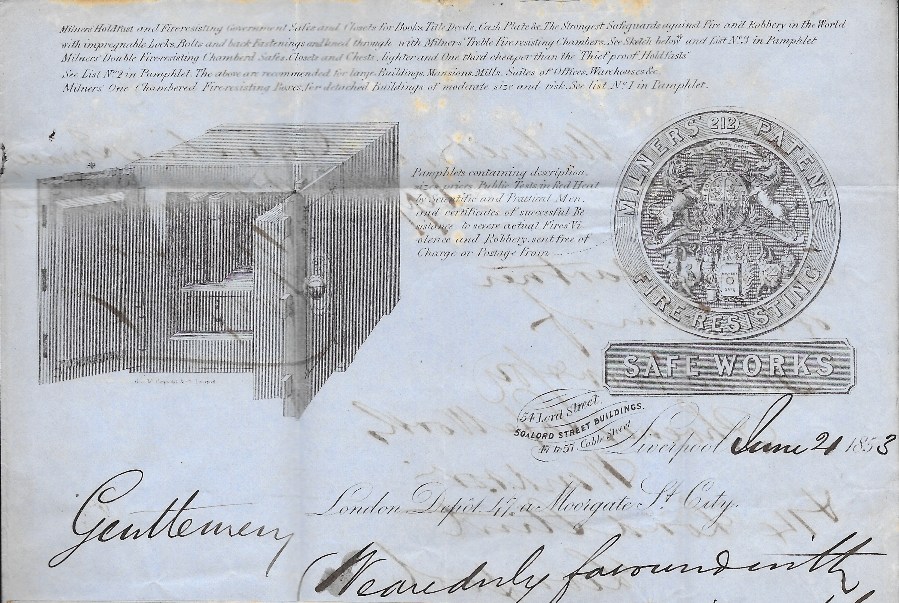 Milners' Holdfast and Fireresisting Government Safes and Closets for Books, Title Deeds, Cash Plate &c, The Strongest Safeguards against Fire and Robbery in the World
with impregnable Locks, Bolts and back Fastenings through with Milners' Treble Fireresisting Chambers, See Sketch below and List No. 3 in Pamphlet
Milners' Double Fireresisting Chamber'd Safes, Closets and Chests, lighter and One third cheaper than the Thief proof Holdfasts
See List No. 2 in Pamphlet. The above are recommended for large Buildings, Mansions, Mills, Suites of Offices, Warehouses &c.
Milners' One Chambered, Fire-resisting Boxes, for detached Buildings of moderate size and risk, See list No. 1 in Pamphlet.
Pamphlets containing description,
prices, Public Tests in Red Heat
by Scientific and Practical Men,
and certificates of successful Re
sistance to severe actual Fires Vi
olence and Robbery, sent free of
Charge or Postage from
MILNERS' 212° PATENT
FIRE-RESISTING
SAFE WORKS
54 Lord Street
LORD STREET BUILDINGS,
Cable Street
Liverpool June 21 1853
London Depôt, 47, a Moorgate St. City.
Gentlemen
We are duly favourd with